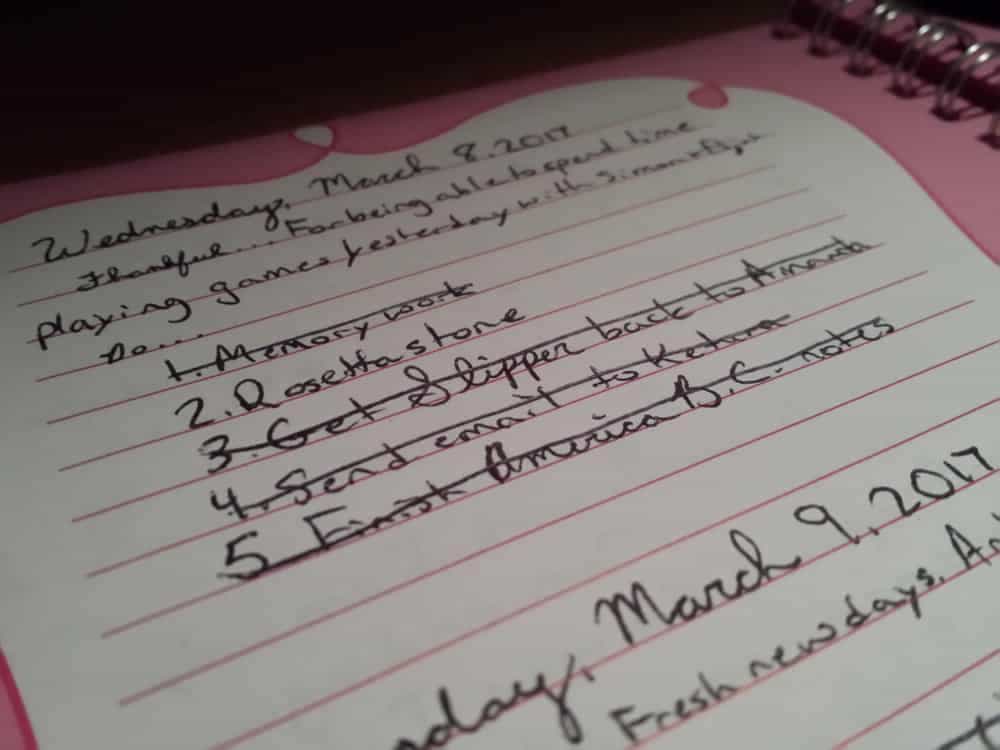 Wednesday, March 8, 2017
Thankful... For being able to spend time
playing games yesterday with
Do...
1. Memory work
2. Rosetta stone
3. Get Slipper back to Amanda
4. Send email to
5. Finish America B.C. notes
day, March 9, 2017
Fresh new days.